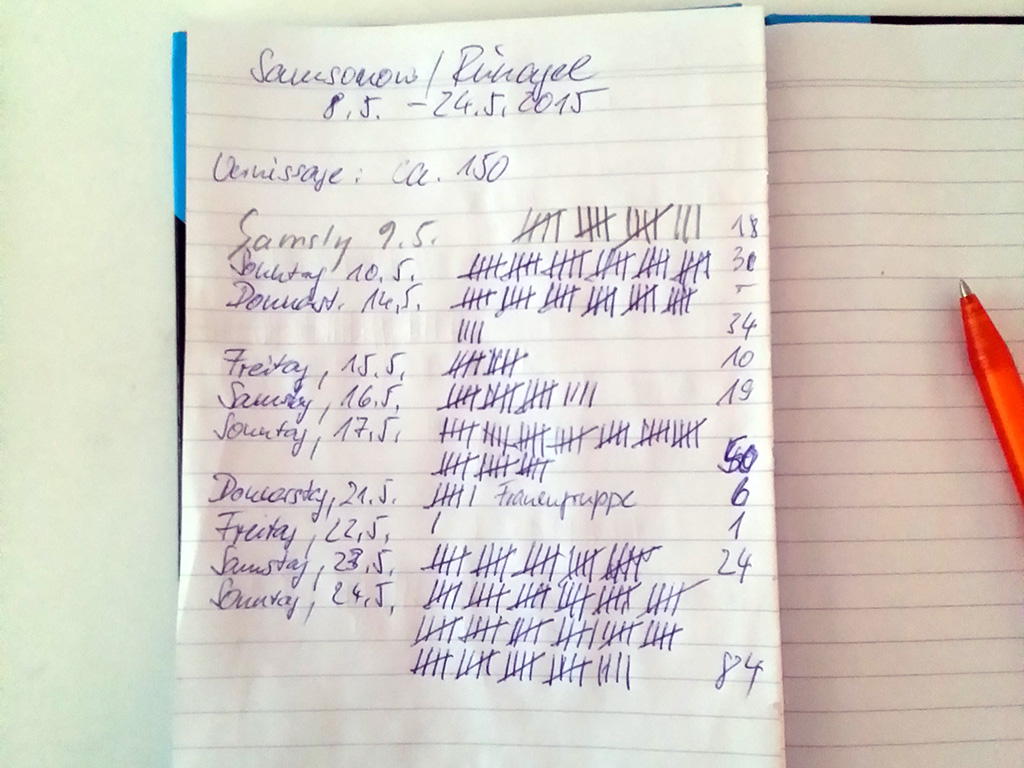 Samsonow / Rühagel
8.5. – 24.5.2015
Vernissage: ca. 150
Samstg 9.5. 18
Sonntag 10.5. 30
Donnerst. 14.5. –
34
Freitag, 15.5. 10
Samstag, 16.5. 19
Sonntag, 17.5.
50
Donnerstag, 21.5. Frauengruppe 6
Freitag, 22.5. 1
Samstag, 23.5. 24
Sonntag, 24.5.
84